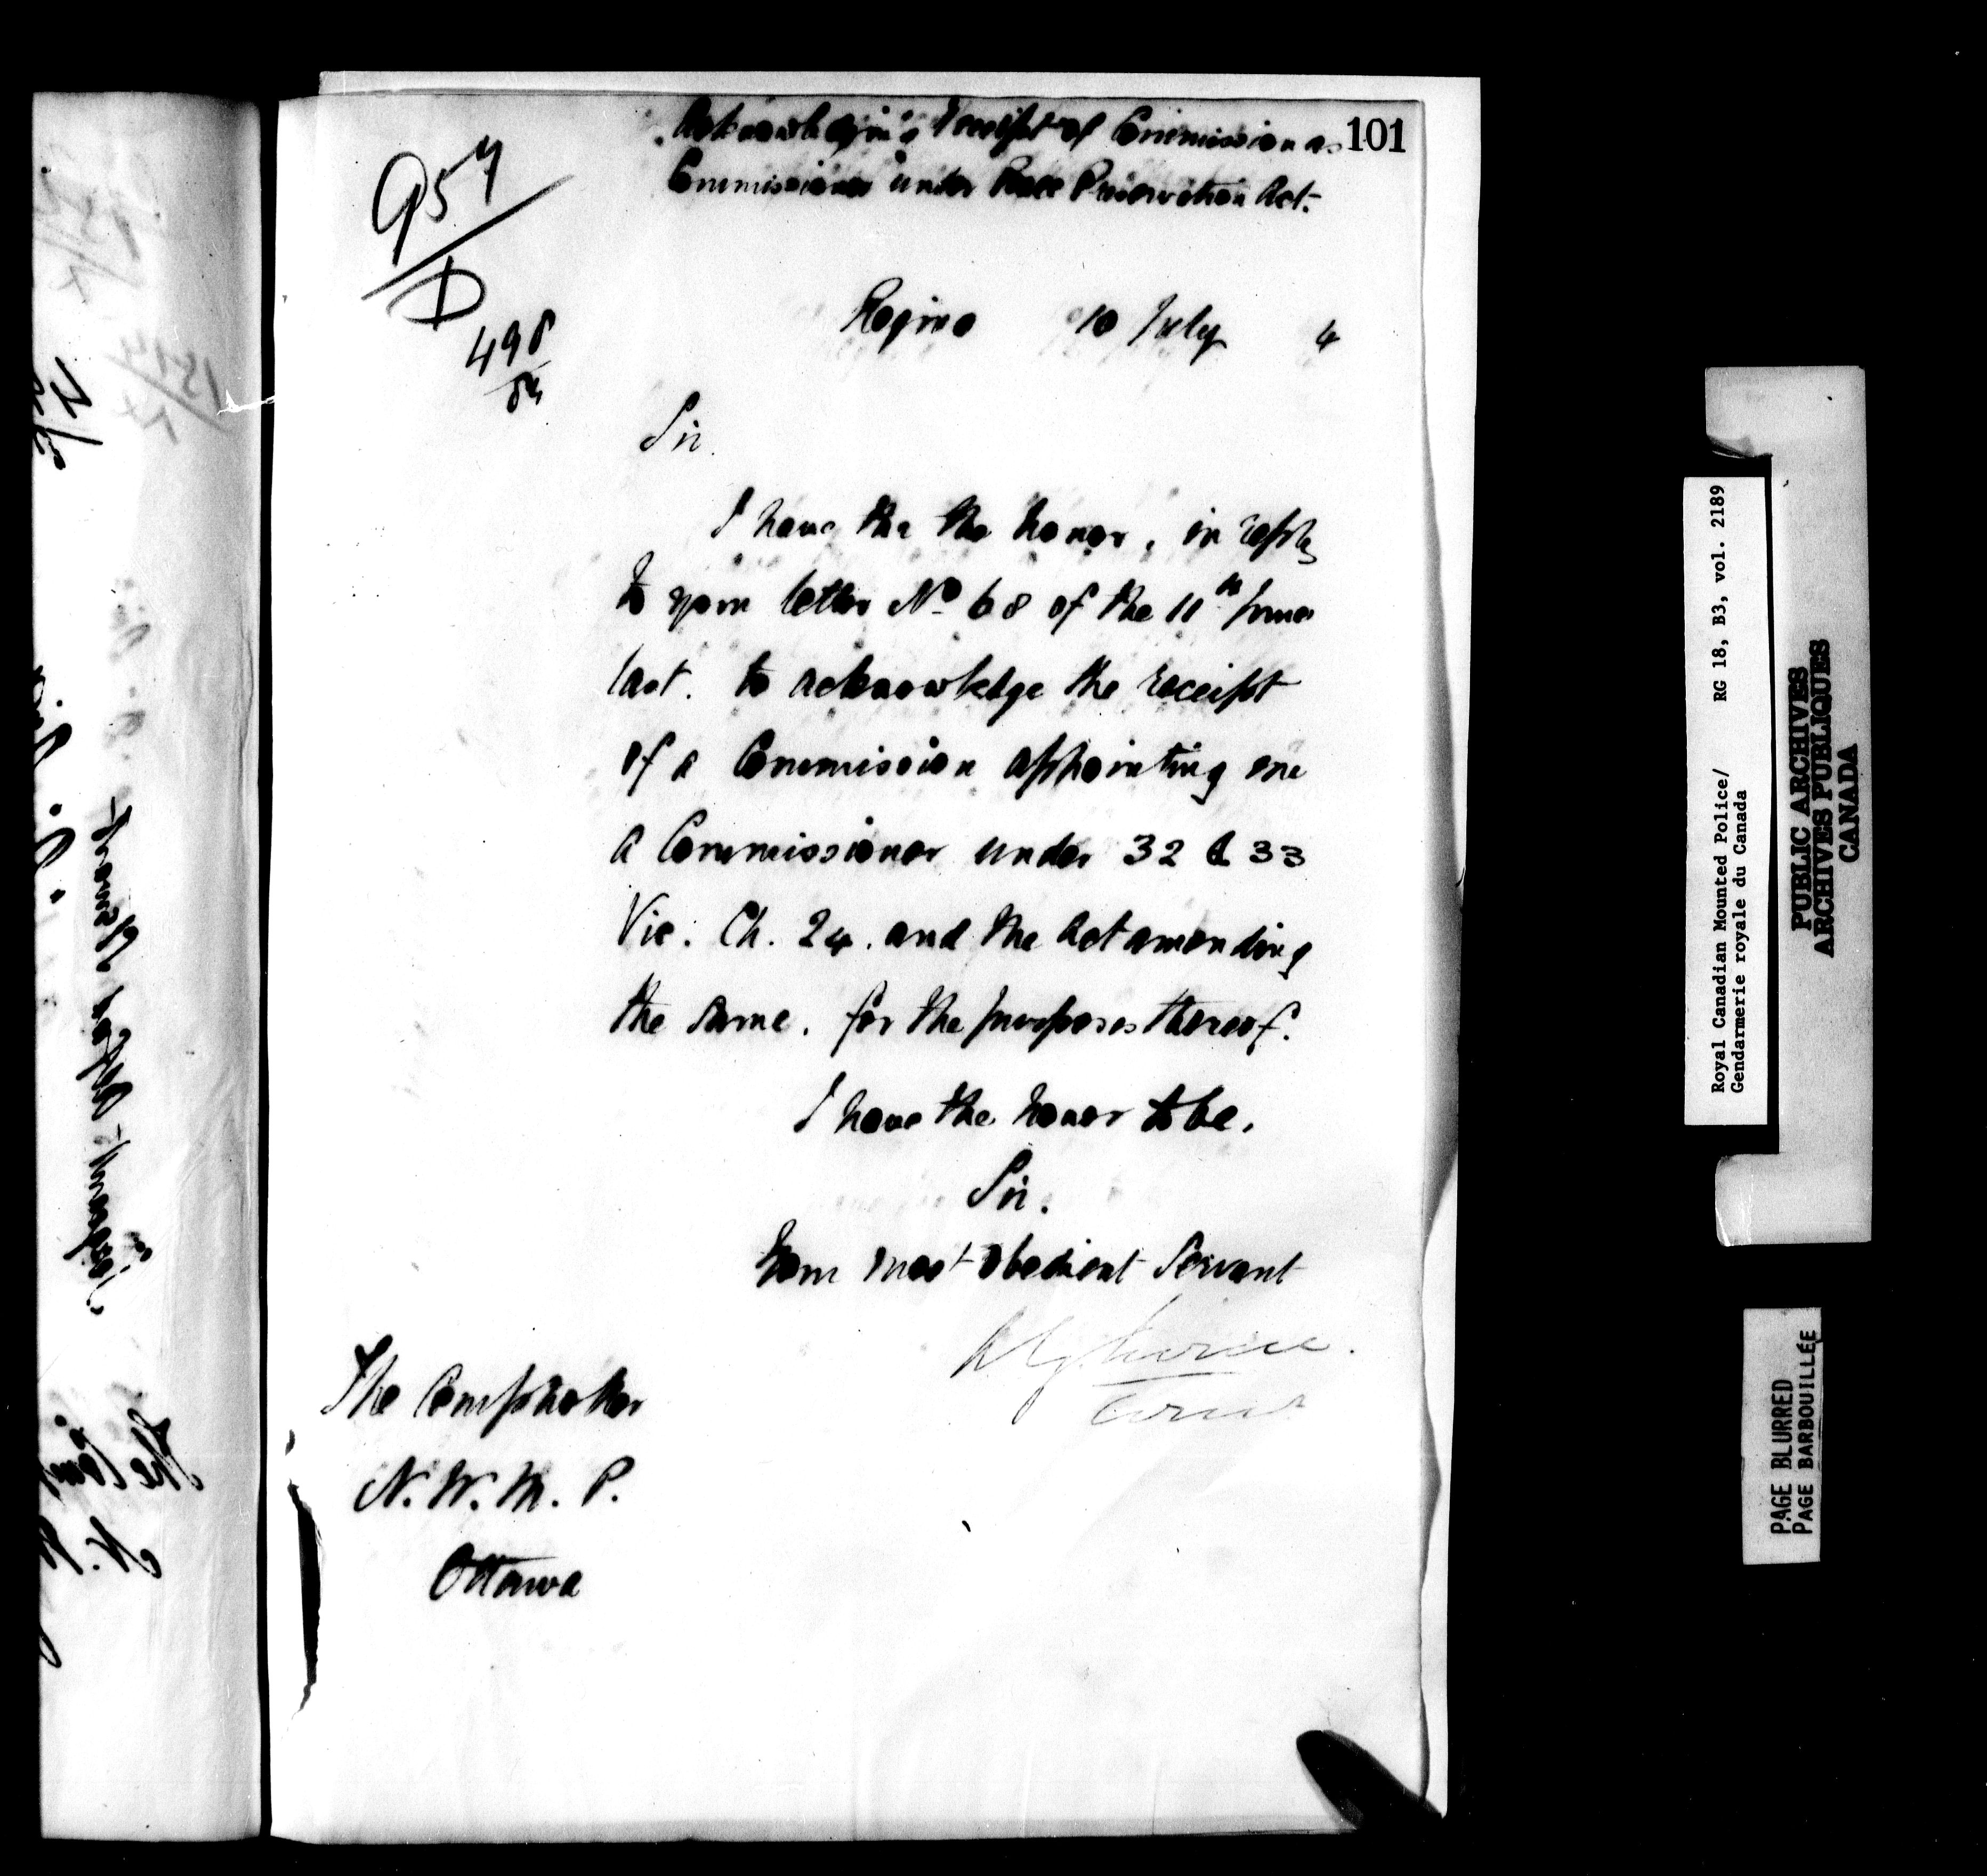 101
Acknowledging Receipt of Commission as
Commissioner under Peace Preservation Act.
957
D
498
84
Regina 10 July 4
Sir.
I have the the honor, in reply
to your letter No 68 of the 11th June
last. to acknowledge the receipt
of a Commission appointing me
a Commissioner under 32 & 33
Vic: Ch. 24. and the Act amending
the same. for the purposes thereof.
I have the honor to be.
Sir.
Your most obedient Servant
The Comptroller
N. W. M. P.
Ottawa
Royal Canadian Mounted Police/ RG 18, B3, vol. 2189
Gendarmerie royale du Canada
PUBLIC ARCHIVES
ARCHIVES PUBLIQUES
CANADA
PAGE BLURRED
PAGE BARBOUILLÉE